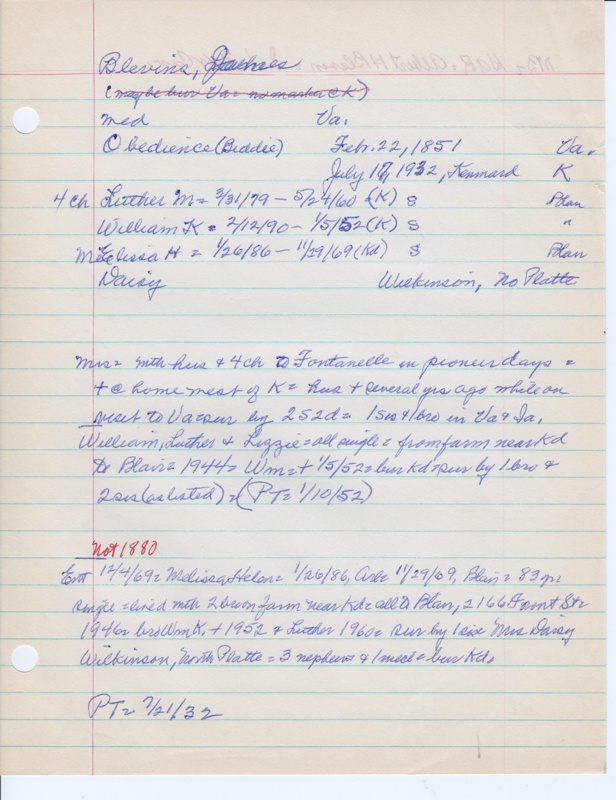 Blevins, James
(maybe bur Va = no marker @ K)
med Va.
Obedience (Biddie) Feb. 22, 1851 Va.
July 17, 1932, Kennard K
4 ch Luther M = 3/31/79 - 5/24/60 (K) S Blair
William K = 2/12/90 - 1/5/52 (K) S "
Melissa H = 1/26/86 - 11/29/69 (Kd) S Blair
Daisy Wilkinson, No Platte
Mrs = mth hus & 4 ch to Fontanelle in pioneer days =
+ @ home west of K = hus + several yrs ago while on
visit to Va = sur by 2S 2d = 1 sis & 1 bro in Va & Ia.
William, Luther & Lizzie = all single = from farm near Kd
to Blair = 1944 = Wm = + 1/5/52 = bur Kd = sur by 1 bro &
2 sis (as listed) = (PT = 1/10/52)
Not 1880
Ent 12/4/69 = Melissa Helen = 1/26/86, Ark = 11/29/69, Blair = 83 yr =
single = lived mth 2 bro on farm near Kd = all to Blair, 2166 Front Str
1946 = bro Wm K. + 1952 & Luther 1960 = sur by 1 sis Mrs Daisy
Wilkinson, North Platte = 3 nephews & 1 niece = bur Kd.
PT = 7/21/32